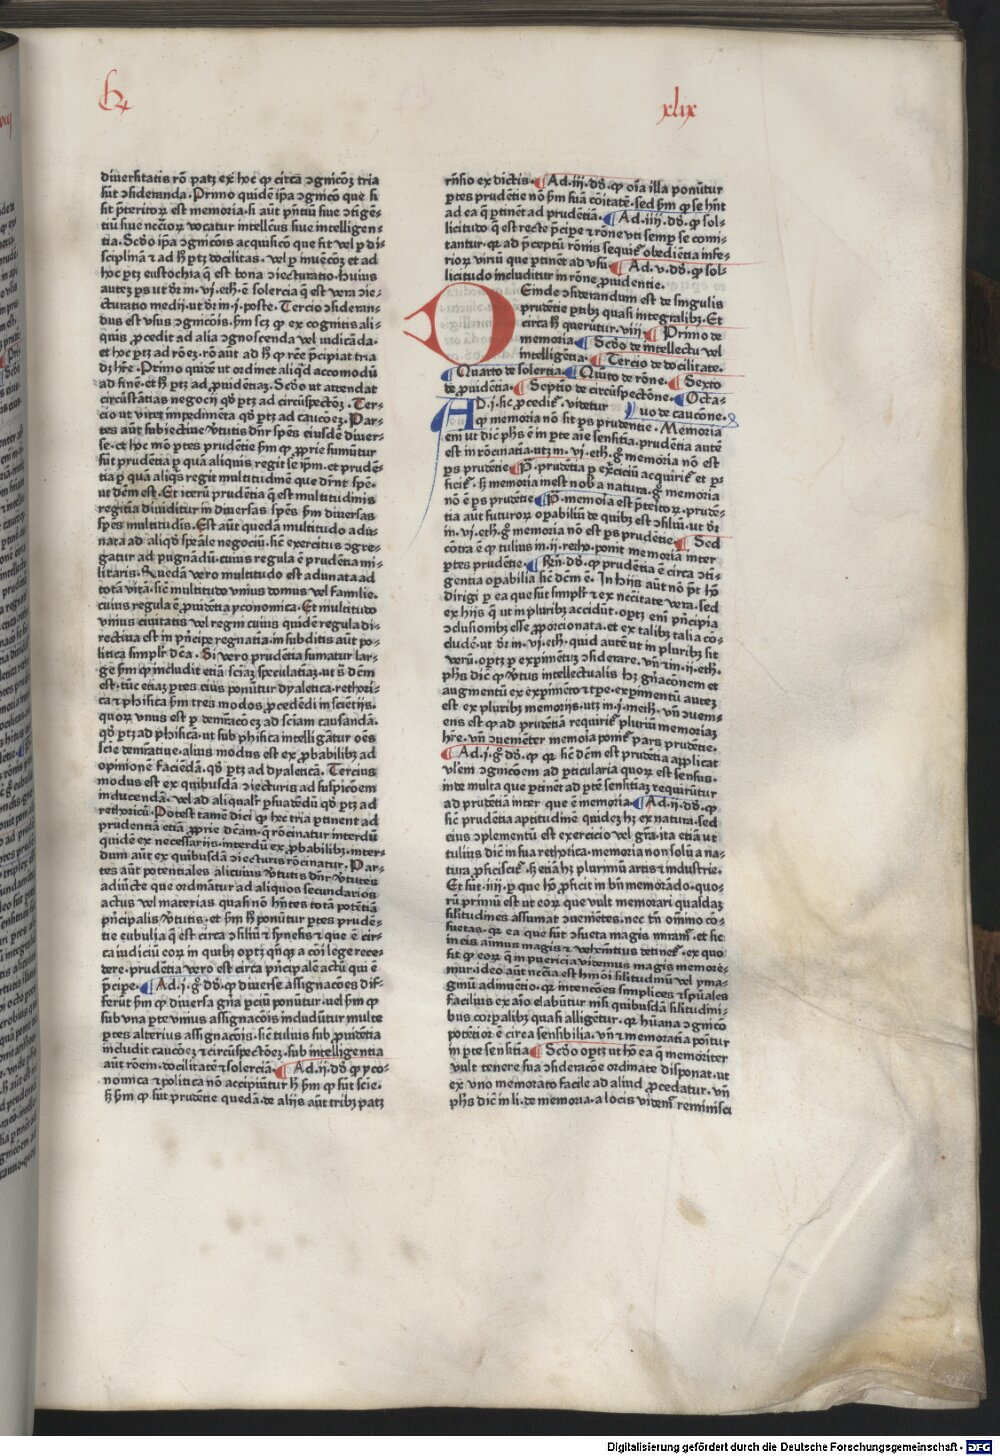 xlix
diuersitatis rõ patz ex hoc ꝙ circa ꝯgnicõꝫ tria
sũt ꝯsideranda. Primo quidē ip̃a ꝯgnicõ que si
sit p̃teritoꝝ est memoria. si aut p̃ntiũ siue ꝯtigē-
tiũ siue nec̃ioꝝ vocatur intellc̃us siue intelligen-
tia. Scđo ip̃a ꝯgnicõis acquisicõ que fit vel ꝑ di-
sciplinã ⁊ ad h̃ ꝑtz docilitas. vel ꝑ inuēcõꝫ et ad
hoc ꝑtz eustochia q̃ est bona ꝯiecturatio. huius
autez ꝑs ut dr̃ m. vj. eth. ē solercia q̃ est vera ꝯie-
cturatio medij. ut dr̃ m. j. poste. Tercio ꝯsideran-
dus est vsus ꝯgnicõis. ẜm scꝫ ꝙ ex cognitis ali-
quis ꝓcedit ad alia ꝯgnoscenda vel iudicãda.
et hoc ꝑtz ad rõeꝫ. rõ aut ad h̃ ꝙ rc̃e p̃cipiat tria
dꝫ hr̃e. Primo quidē ut ordinet aliqđ accomodũ
ad finē. et h̃ ꝑtz ad ꝓuidentiaꝫ. Scđo ut attendat
circũstãtias negocij qđ ꝑtz ad circũspectõꝫ. Ter-
cio ut vitet impedimēta qđ ꝑtz ad caucõeꝫ. Par-
tes aũt subiectiue v̓tutis dñr spēs eiusdē diuer-
se. et hoc mõ ꝑtes prudētie ẜm ꝙ ꝓprie sumũtur
sũt prudētia ꝑ quã aliquis regit se ip̃m. et prudē-
tia ꝑ quã aliqs regit multitudinē que dr̃nt spē.
ut dc̃m est. Et iterũ prudētia q̃ est multitudinis
regitiua diuiditur in diuersas spēs. ẜm diuersas
spēs multitudis. Est aũt quedã multitudo adu-
nata ad aliqđ sꝑeãle negociũ. sic̃ exercitus ꝯgre-
gatur ad pugnãdũ. cuius regula ē prudētia mi-
litaris. Quedã vero multitudo est adunata ad
totã vitã. sic̃ multitudo vnius domus vel familie.
cuius regula ē ꝓuidētia yconomica. Et multitudo
vnius ciuitatis vel regni cuius quidē regula di-
rectiua est in p̃ncipe regnatia. in subditis aũt po-
litica simplr̃ dc̃a. Si vero prudētia sumatur lar-
ge ẜm ꝙ includit etiã sciaꝫ speculatiaꝫ. ut s̃ dc̃m
est. tũc etiaꝫ ꝑtes eius ponũtur dyaletica. rethori-
ca ⁊ phisica ẜm tres modos ꝓcedēdi in sciētijs.
quoꝝ vnus est ꝑ demr̃acõeꝫ ad sciam causandã.
qđ ꝑtz ad phisicã. ut sub phisica intelligãtur oēs
scie demr̃atiue. alius modus est ex ꝓbabilibꝫ ad
opinionē faciēdã. qđ ꝑtz ad dyaleticã. Tercius
modus est ex quibusdã ꝯiecturis ad suspicõem
inducendã. vel ad aliqualr̃ ꝑsuadēdũ qđ ꝑtz ad
rethoricã. Potest tamē dici ꝙ hec tria ꝑtinent ad
prudentiã etiã ꝓprie dc̃am. q̃ rõcinatur interdũ
quidē ex necessarijs. interdũ ex ꝓbabilibꝫ. inter-
dum aũt ex quibusdã ꝯiecturis rõcinatur. Par-
tes aũt potentiales alicuius v̓tutis dñr v̓tutes
adiũcte que ordinãtur ad aliquos secundarios
actus vel materias quasi nõ hñtes totã potētiã
p̃ncipalis v̓tutis. et ẜm h̃ ponũtur ꝑtes prudē-
tie eubulia q̃ est circa ꝯsiliũ ⁊ synesis q̃ que ē cir-
ca iudiciũ eoꝝ in quibꝫ optꝫ qñqꝫ a cõi lege rece-
dere. prudētia vero est circa p̃ncipalē actũ qui ē
p̃cipe. Ad. j. g̃ dđ. ꝙ diuerse assignacões dif-
ferũt ẜm ꝙ diuersa gña ꝑciũ ponũtur. uel ẜm ꝙ
sub vna ꝑte vnius assignacõis includũtur multe
ꝑtes alterius assignacõis. sic̃ tulius sub ꝓuidētia
includit caucõeꝫ ⁊ circũspectõeꝫ. sub intelligentia
aũt rõem. docilitatē ⁊ solercia. Ad. ij. dđ. ꝙ yco-
nomica ⁊ politica nõ accipiũtur h̃ ẜm ꝙ sũt scie.
ẞ ẜm ꝙ sũt prudētie quedã. de alijs aũt tribꝫ patz
rñsio ex dictis. Ad. iij. dđ. ꝙ oĩa illa ponũtur
ꝑtes prudētie nõ ẜm suã cõitatē. sed ẜm ꝙ se hñt
ad ea q̃ ꝑtinēt ad prudētiã. Ad. iiij. dđ. ꝙ sol-
licitudo q̃ est recte p̃cipe ⁊ rõne vti semꝑ se comi-
tantur. qꝛ ad p̃ceptũ rõnis sequit̃ obediētia infe-
rioꝝ viriũ que ꝑtinēt ad vsũ. Ad. v. dđ. ꝙ sol-
licitudo includitur in rõne ꝓuidentie.
DEinde ꝯsiderandum est de singulis
prudētie ꝑtibꝫ quasi integralibꝫ. Et
circa h̃ querũtur. viij. Primo de
memoria. Scđo de intellectu vel
intelligētia. Tercio de docilitate.
Quarto de solertia. Quĩto de rõne. Sexto
de ꝓuidētia. Septĩo de circũspectõne. Octa-
AD. j. sic ꝓcedit̃. videtur uo de caucõne.
ꝙ memoria nõ sit ꝑs prudentie. Memoria
em̃ ut dic̃ phs̃ ē in ꝑte aĩe sensitia. prudētia autē
est in rõcinatia. utz m. vj. eth. g̃ memoria nõ est
ꝑs prudētie. P̃. prudētia ꝑ exerciciũ acquirit̃ et ꝑ-
ficit̃. ẞ memoria inest nob̃ a natura. g̃ memoria
nõ ē ꝑs prudētie. P̃. memoĩa est p̃teĩtoꝝ. prudē-
tia aut futuroꝝ oꝑabiliũ de quibꝫ est ꝯsiliũ. ut dr̃
m. vj. eth. g̃ memoria non est ꝑs prudētie. Sed
cõtra ē ꝙ tulius m. ij. retho. ponit memoria inter
ꝑtes prudētie. Rñ. dđ. ꝙ prudētia ē circa ꝯti-
gentia oꝑabilia sic̃ dc̃m ē. In hijs aũt nõ p̃t hõ
dirigi ꝑ ea que sũt simplr̃ ⁊ ex nc̃citate vera. sed
ex hijs q̃ ut in pluribꝫ accidũt. optꝫ em̃ p̃ncipia
ꝯclusionibꝫ esse ꝓporcionata. et ex talibꝫ talia cõ-
cludē. ut dr̃ m. vj. eth. quid autē ut in pluribꝫ sit
verũ. optꝫ ꝑ exꝑimētuꝫ ꝯsiderare. vñ ⁊ m. ij. eth.
phs̃ dic̃ ꝙ v̓tus intellectualis hꝫ gñacõnem et
augmentũ ex exꝑimēto ⁊ tꝑe. exꝑimentũ autez
est ex pluribꝫ memorijs. utz m. j. meth. vñ ꝯuem-
ens est ꝙ ad prudētiã requirit̃ pluriũ memoriaꝫ
hr̃e. vñ ꝯuemēter memoĩa ponit̃ pars prudētie.
Ad. j. g̃ dđ. ꝙ qꝛ sic̃ dc̃m est prudētia applicat
vl̃em ꝯgnicõem ad ꝑticularia quoꝝ est sensus.
inde multa que ꝑtinet ad ꝑtē sensitiaꝫ requirũtur
ad prudētiã inter que ē memoria. Ad. ij. dđ. ꝙ
sic̃ prudētia aptitudinē quidez hꝫ ex natura. sed
eius ꝯplementũ est exercicio vel grã. ita etiã ut
tulius dic̃ in sua rethorica. memoria non solũ a na-
tura ꝓficiscit̃. ẞ etiã hꝫ plurimũ artis ⁊ industrie.
Et sũt. iiij. ꝑ que hõ ꝓficit in bñ memorãdo. quo-
rũ primũ est ut eoꝝ que vult memorari quasdaꝫ
silitudines assumat ꝯueniētes. nec tñ omnino cõ-
suetas. qꝛ ea que sũt ꝯsueta magis miram̃. et sic
in eis aimus magis ⁊ vehemētius detinet̃. ex quo
fit ꝙ eoꝝ q̃ in puericia vidimus magis memore-
mur. ideo aũt nc̃cia est hmõi silitudinũ vel yma-
ginũ adinuētio. qꝛ intencões simplices ⁊ sꝑũales
facilius ex aĩo elabũtur nisi quibusdã silitudini-
bus corꝑalibꝫ quasi alligētur. qꝛ hũana ꝯgnicõ
potētior ē circa sensibilia. vñ ⁊ memoratia poĩtur
in ꝑte sensitia. Scđo optꝫ ut hõ ea q̃ memoriter
vult tenere sua ꝯsideracõe ordinate disponat. ut
ex vno memorato facile ad aliud ꝓcedatur. vñ
phs̃ dic̃ in li. de memoria. a locis vident̃ reminisci
Digitalisierung gefördert durch die Deutsche Forschungsgemeinschaft - DFG